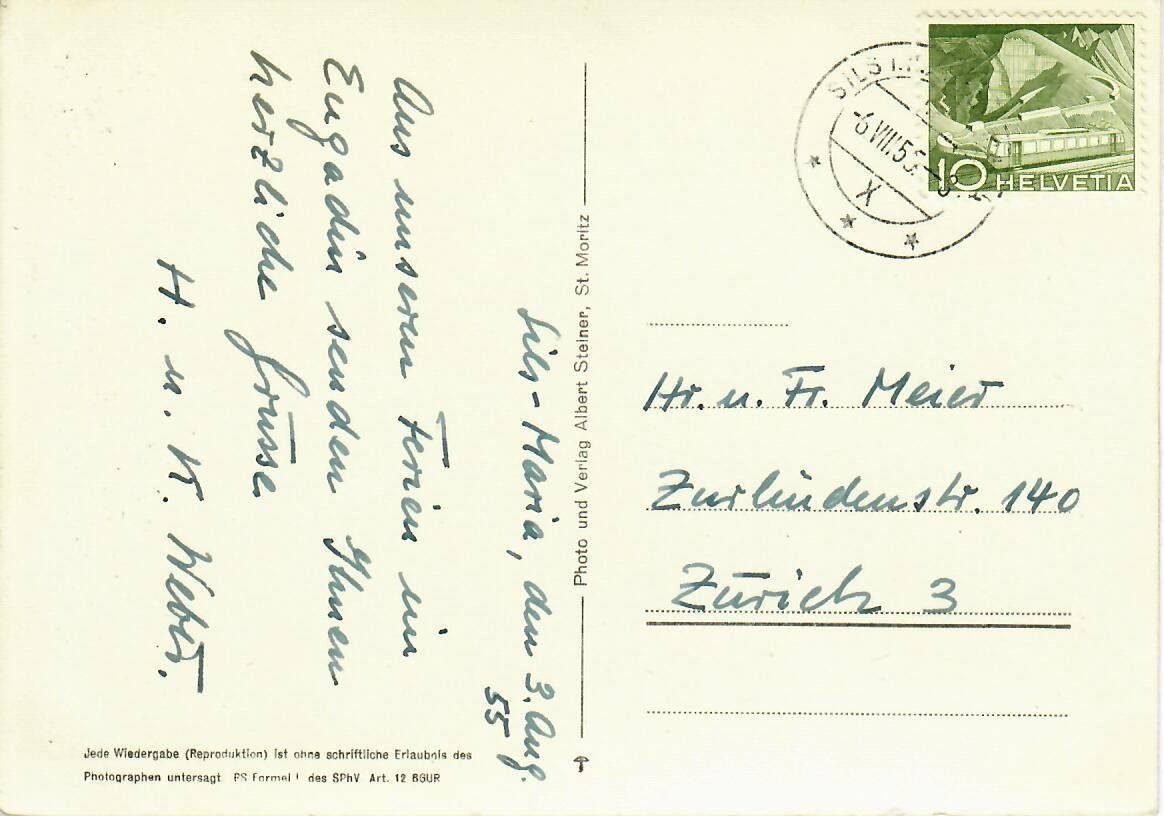 Sils-Maria, den 3. Aug.
55
Aus unseren Ferien im
Engadin senden Ihnen
herzliche Grüsse
H. u. K. Weber.
Photo und Verlag Albert Steiner, St. Moritz
Jede Wiedergabe (Reproduktion) ist ohne schriftliche Erlaubnis des
Photographen untersagt PS Formel des SPhV Art. 12 BGUR
SILS
-6.VIII.55.-8
X
10 HELVETIA
Hr. u. Fr. Meier
Zurlindenstr. 140
Zürich 3